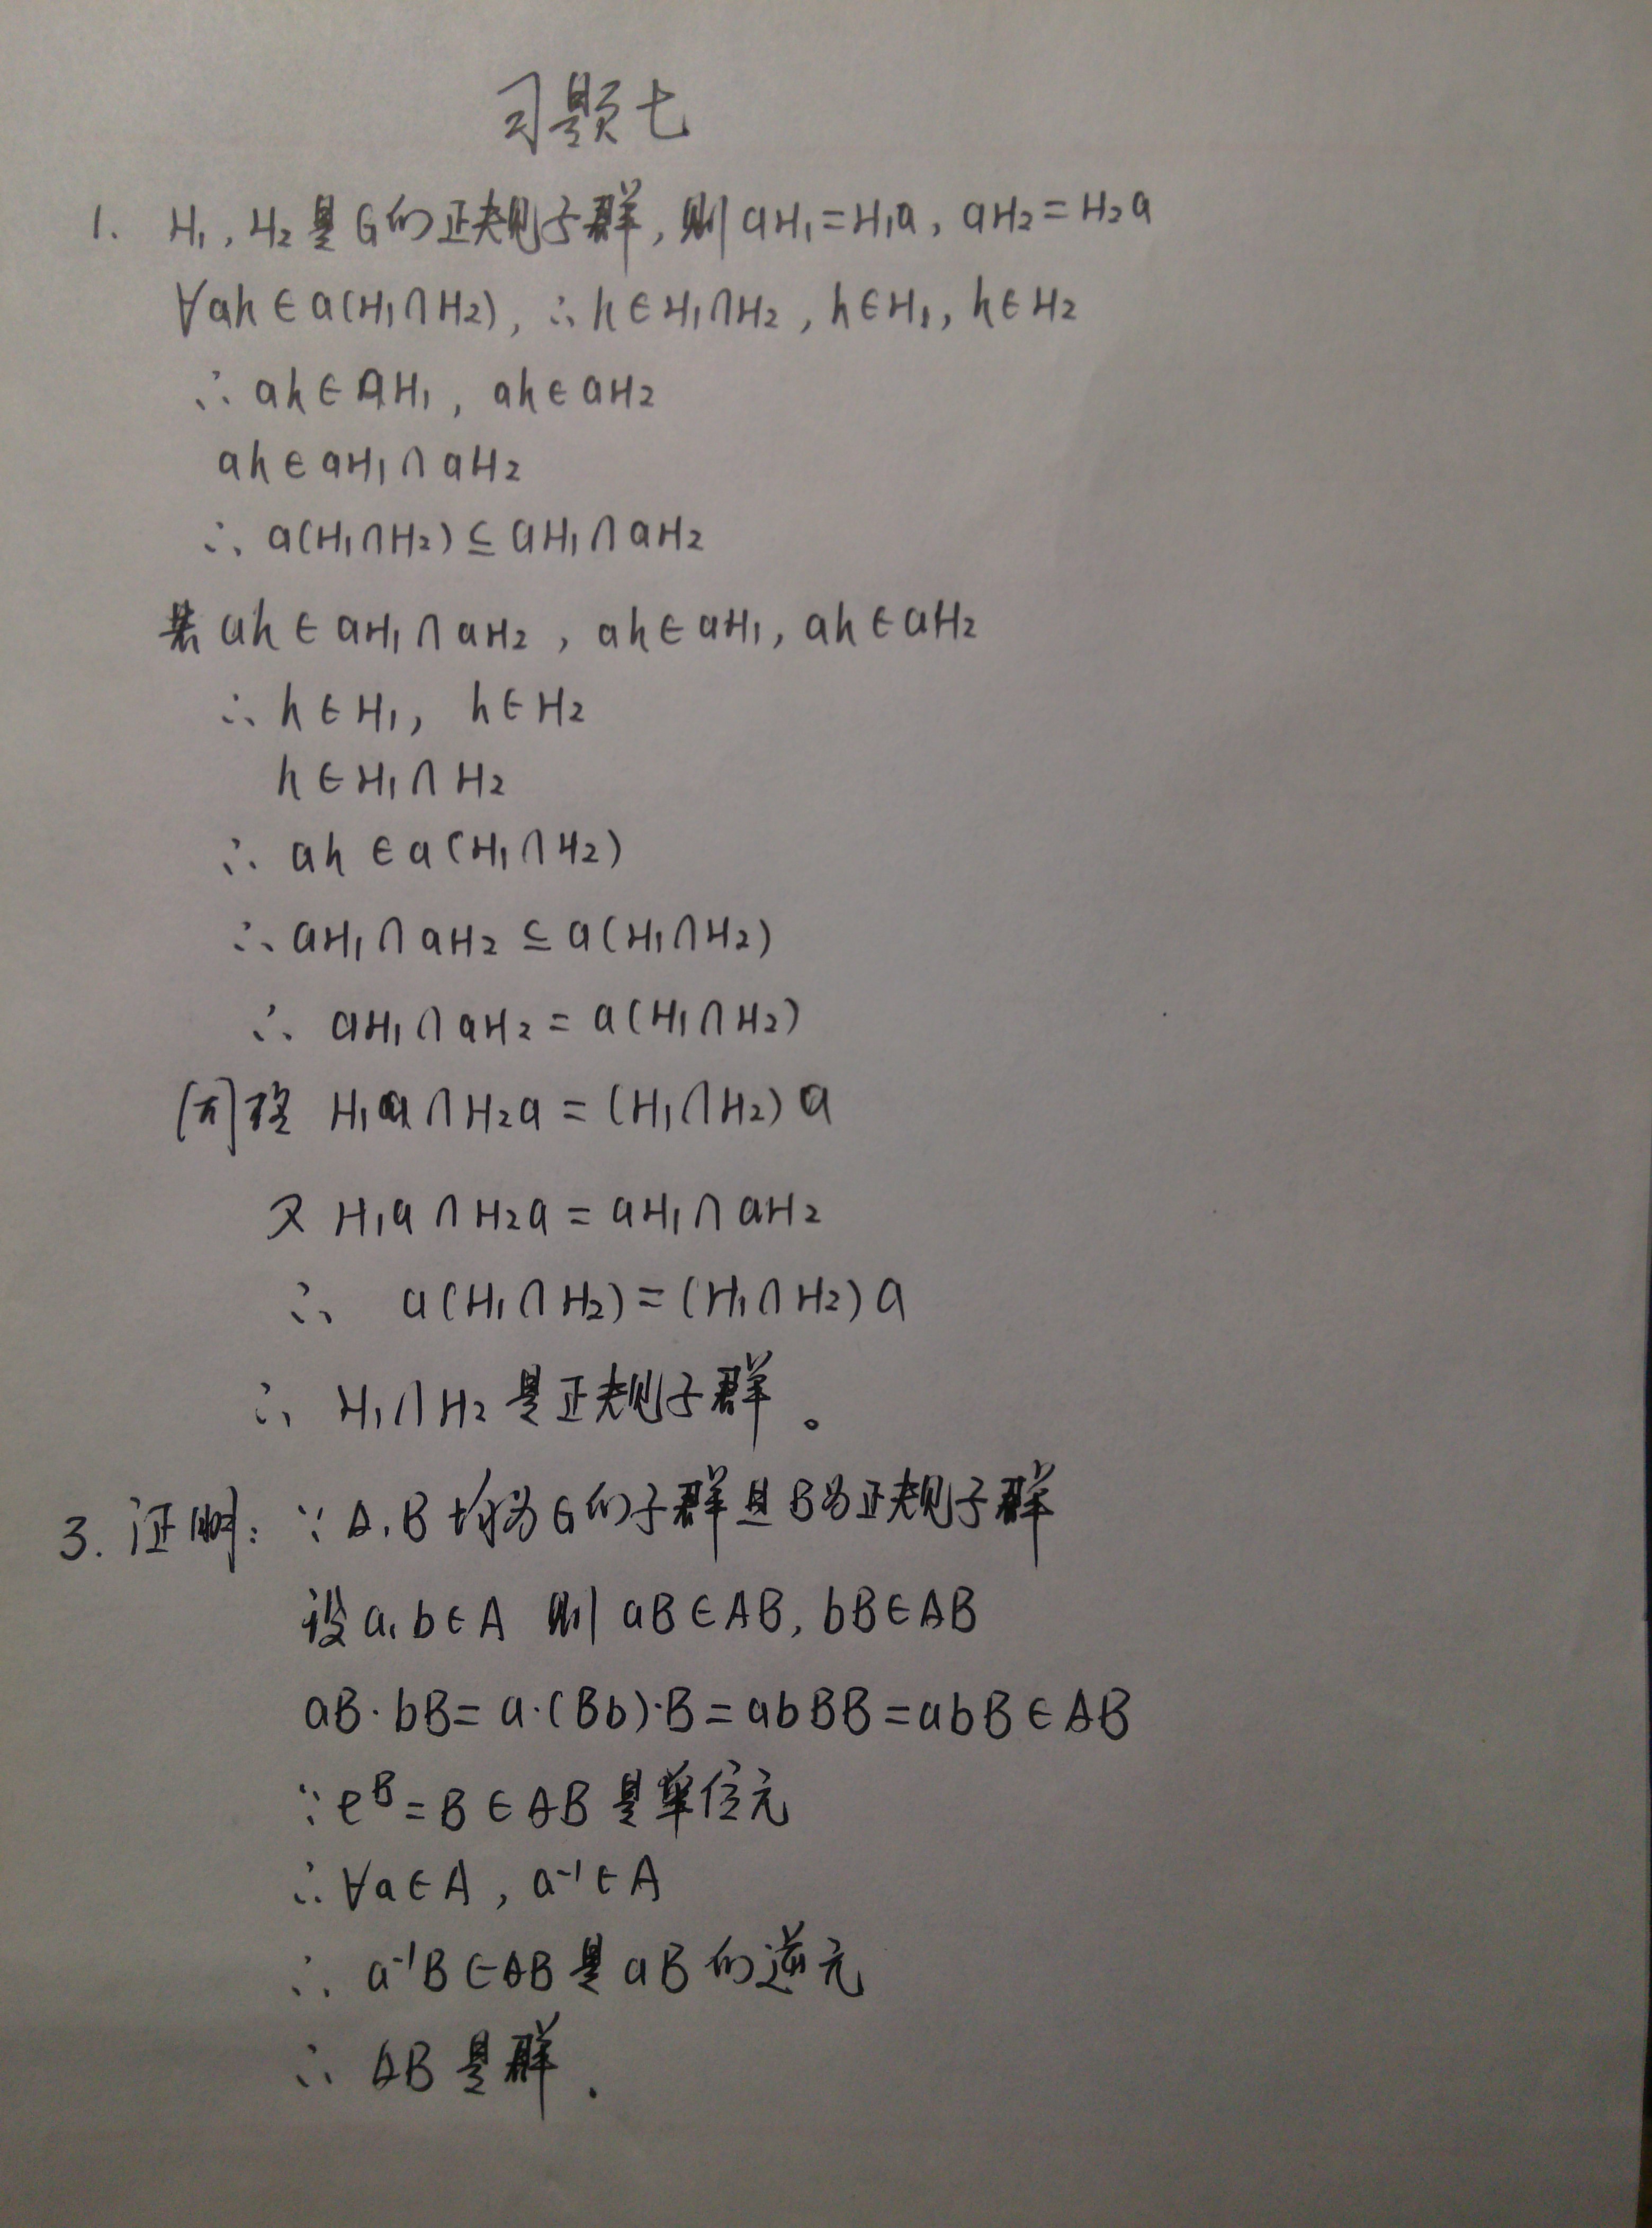 习题七
1. H₁, H₂是G的正规子群, 则 aH₁=H₁a, aH₂=H₂a
∀ah∈a(H₁∩H₂), ∴h∈H₁∩H₂, h∈H₁, h∈H₂
∴ ah∈AH₁, ah∈aH₂
ah∈aH₁∩aH₂
∴ a(H₁∩H₂)⊆aH₁∩aH₂
若 ah∈aH₁∩aH₂, ah∈aH₁, ah∈aH₂
∴ h∈H₁, h∈H₂
h∈H₁∩H₂
∴ ah∈a(H₁∩H₂)
∴ aH₁∩aH₂⊆a(H₁∩H₂)
∴ aH₁∩aH₂=a(H₁∩H₂)
同理 H₁a∩H₂a=(H₁∩H₂)a
又 H₁a∩H₂a=aH₁∩aH₂
∴ a(H₁∩H₂)=(H₁∩H₂)a
∴ H₁∩H₂是正规子群。
3. 证明: ∵ A,B均为G的子群且B为正规子群
设a,b∈A 则 aB∈AB, bB∈AB
aB·bB=a·(Bb)·B=abBB=abB∈AB
∵eᴮ=B∈AB是单位元
∴∀a∈A, a⁻¹∈A
∴ a⁻¹B∈AB是aB的逆元
∴ AB是群.